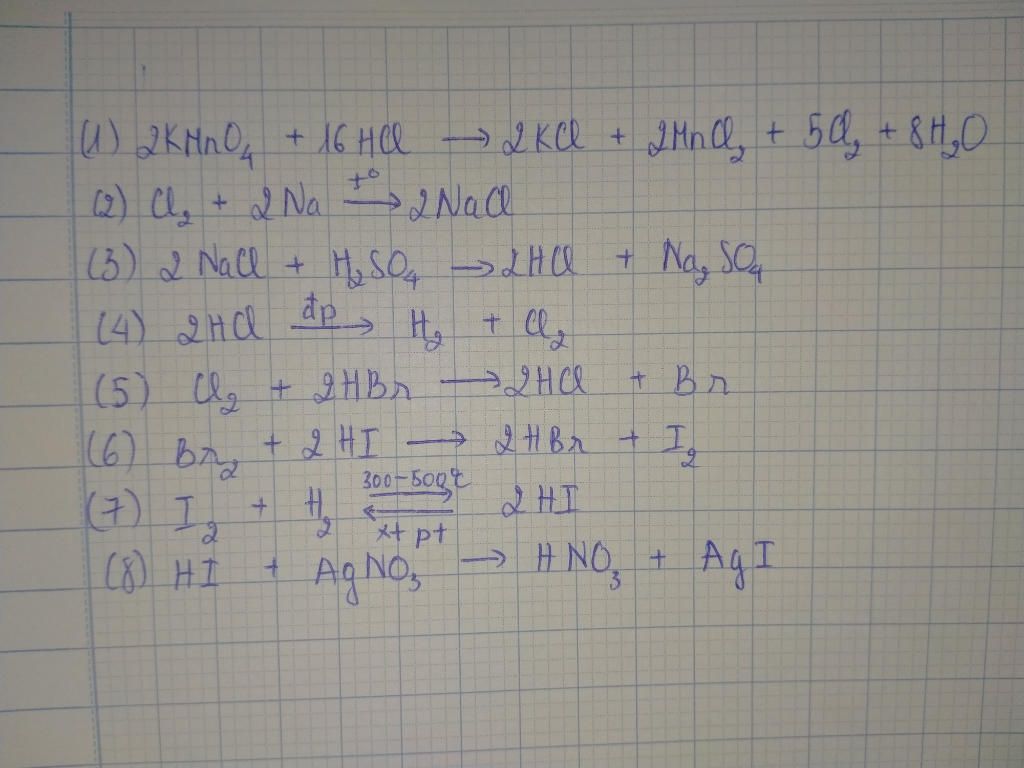 (1) 2KMnO₄ + 16HCl → 2KCl + 2MnCl₂ + 5Cl₂ + 8H₂O
(2) Cl₂ + 2Na →(t°) 2NaCl
(3) 2NaCl + H₂SO₄ → 2HCl + Na₂SO₄
(4) 2HCl →(đp) H₂ + Cl₂
(5) Cl₂ + 2HBr → 2HCl + Br
(6) Br₂ + 2HI → 2HBr + I₂
(7) I₂ + H₂ ⇌(300-500°C, xt pt) 2HI
(8) HI + AgNO₃ → HNO₃ + AgI